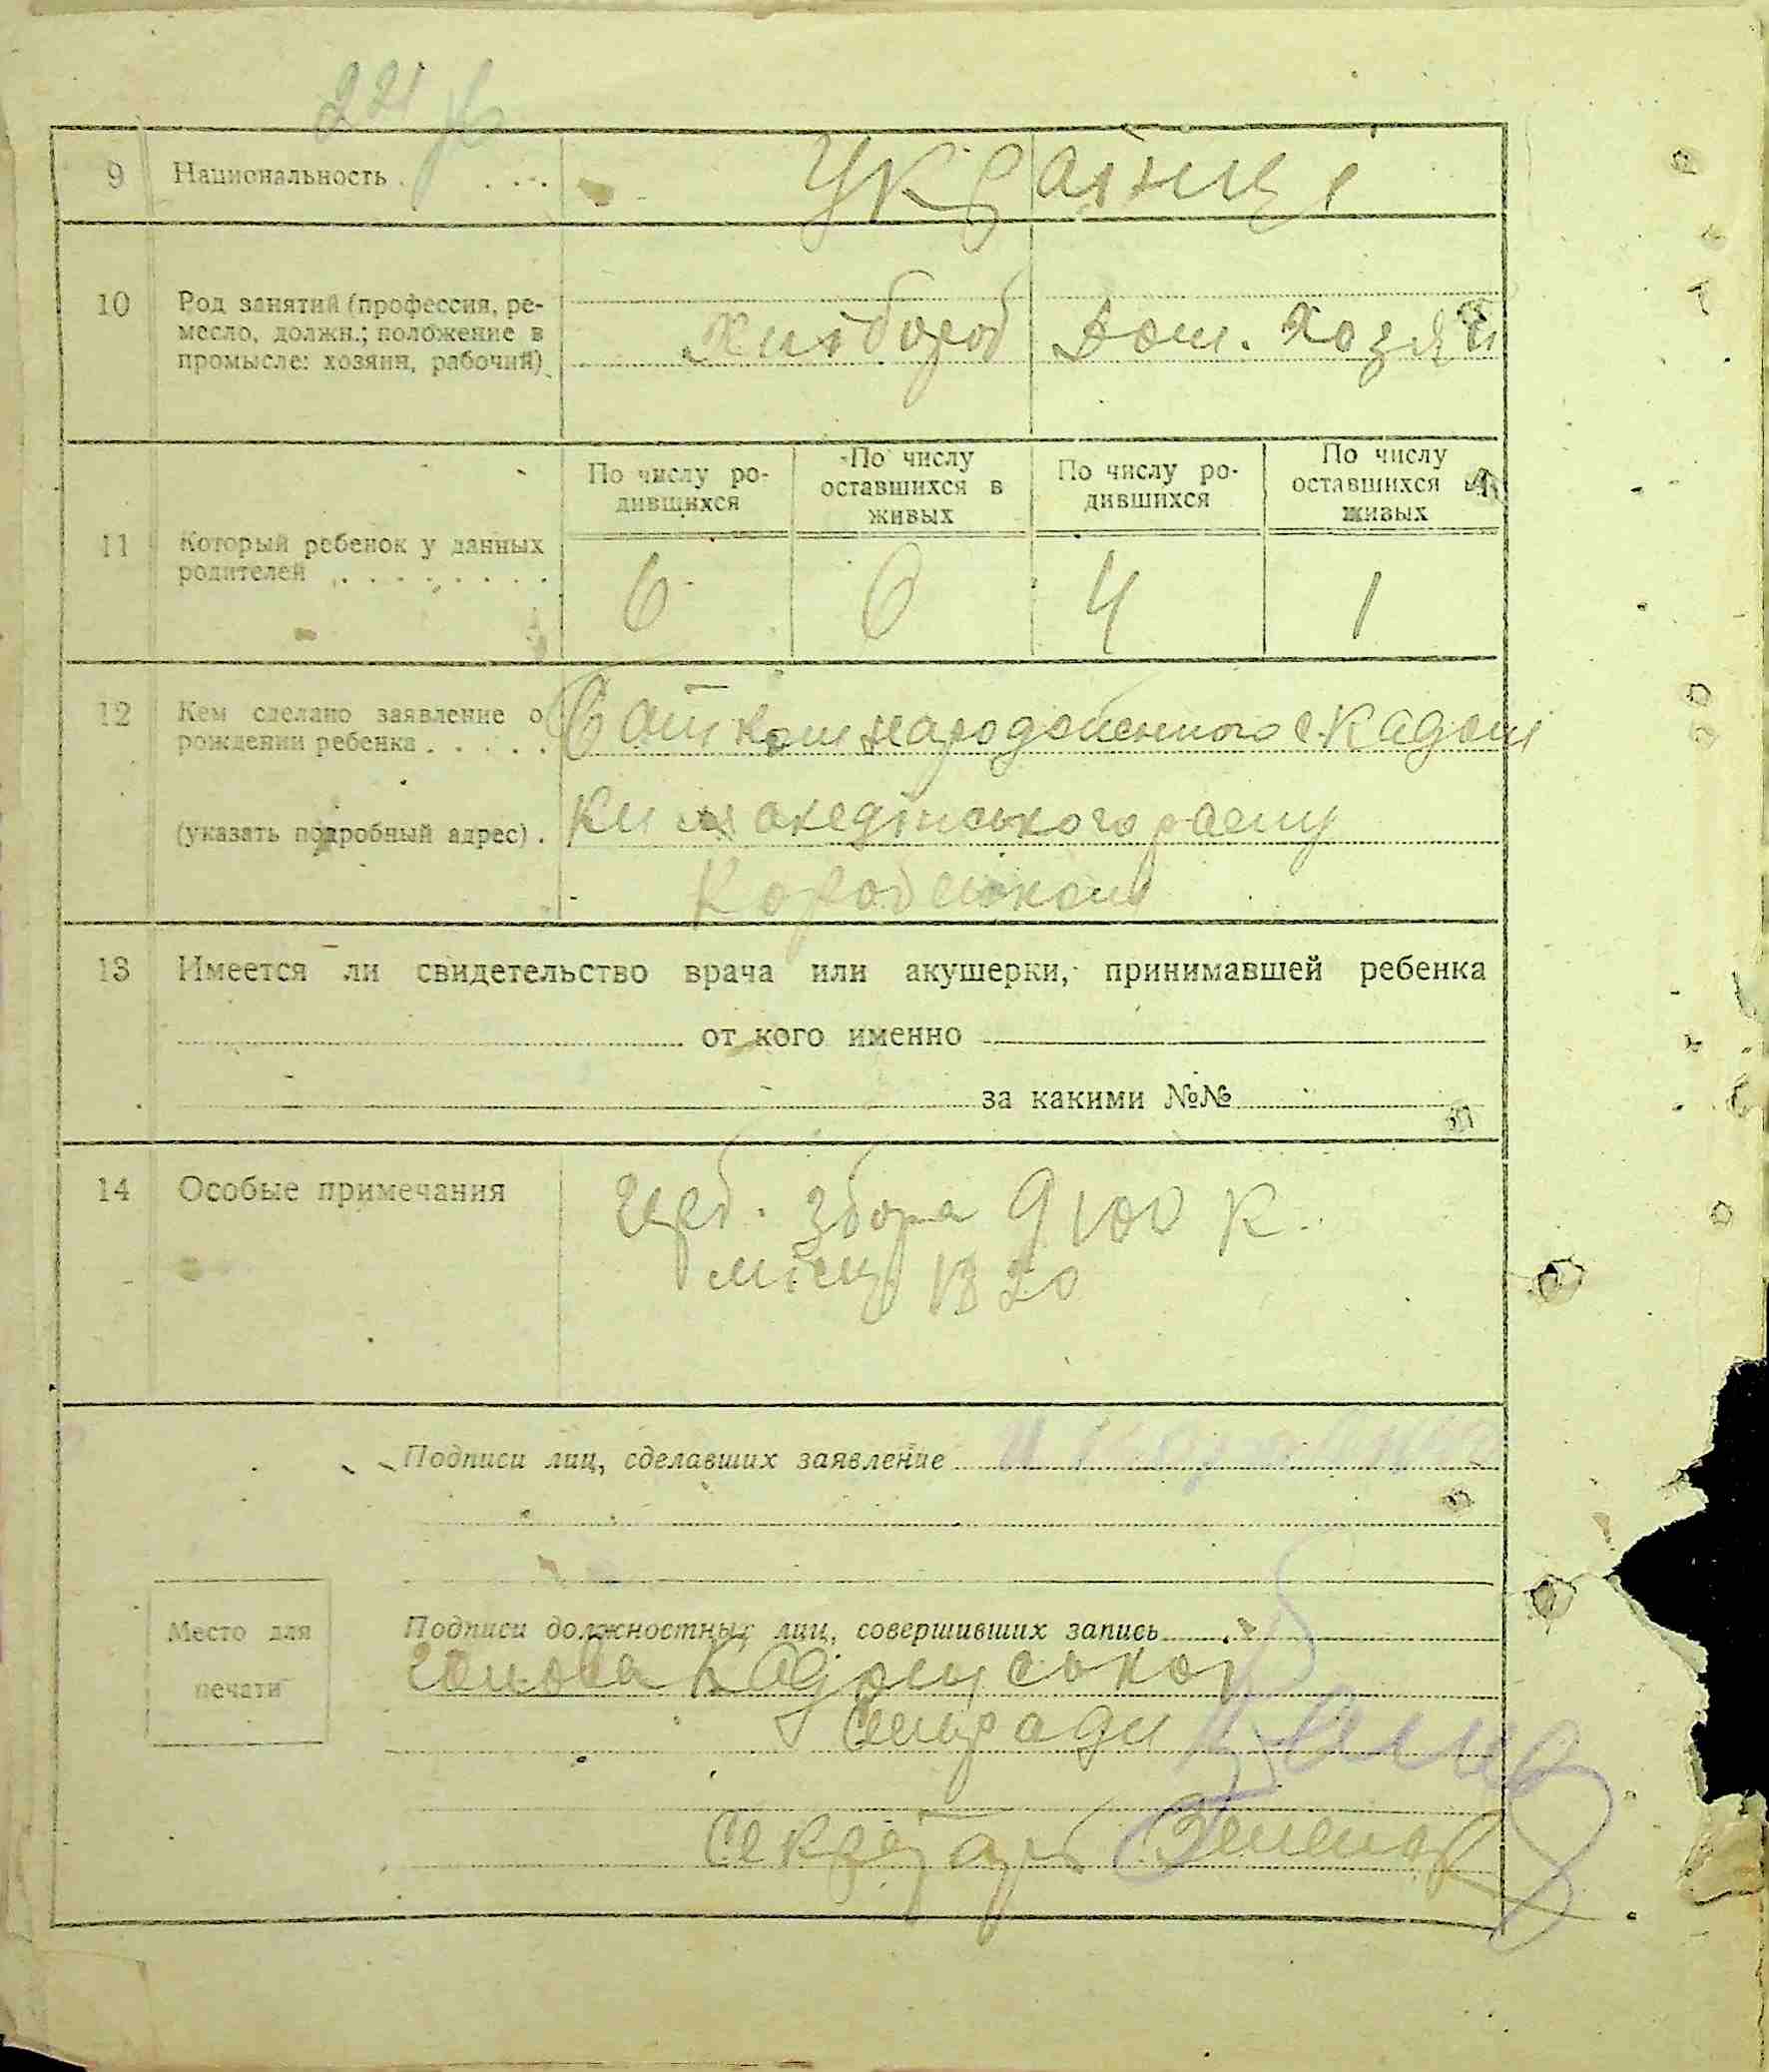 221
9 Национальность . . . . Українці
10 Род занятий (профессия, ре-
месло, должн.; положение в
промысле: хозяин, рабочий)
Хлібороб Дом. хозяй
По числу ро-
дившихся
По числу
оставшихся в
живых
По числу ро-
дившихся
По числу
оставшихся в
живых
11 Который ребенок у данных
родителей . . . . . . . .
6 6 4 1
12 Кем сделано заявление о
рождении ребенка . . . . .
Батком народженного с. Кадом
(указать подробный адрес) .
ки району
13 Имеется ли свидетельство врача или акушерки, принимавшей ребенка
от кого именно
за какими №№
14 Особые примечания
збора 9 100 К.
місц 1320
Подписи лиц, сделавших заявление
Место для
печати
Подписи должностных лиц, совершивших запись
Голова Кадомської
Сільради
Секретарь